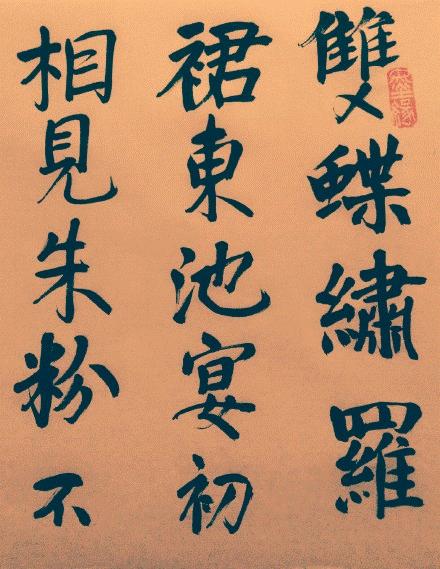 雙蝶繡羅
裙東池宴初
相見朱粉不